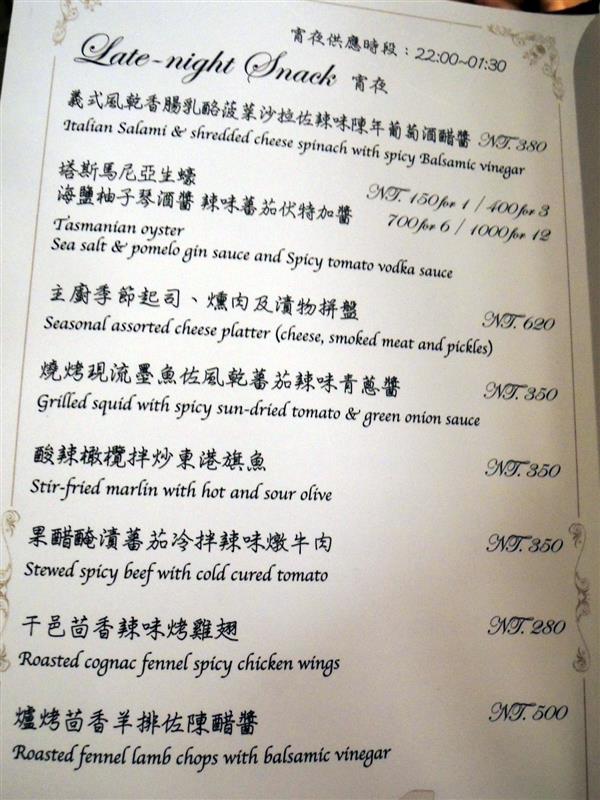 宵夜供應時段：22:00~01:30
Late-night Snack 宵夜
義式風乾香腸乳酪菠菜沙拉佐辣味陳年葡萄酒醋醬 NT. 380
Italian Salami & shredded cheese spinach with spicy Balsamic vinegar
塔斯馬尼亞生蠔
海鹽柚子琴酒醬 辣味蕃茄伏特加醬 NT. 150 for 1 / 400 for 3
700 for 6 / 1000 for 12
Tasmanian oyster
Sea salt & pomelo gin sauce and Spicy tomato vodka sauce
主廚季節起司、燻肉及漬物拼盤 NT. 620
Seasonal assorted cheese platter (cheese, smoked meat and pickles)
燒烤現流墨魚佐風乾蕃茄辣味青蔥醬 NT. 350
Grilled squid with spicy sun-dried tomato & green onion sauce
酸辣橄欖拌炒東港旗魚 NT. 350
Stir-fried marlin with hot and sour olive
果醋醃漬蕃茄冷拌辣味燉牛肉 NT. 350
Stewed spicy beef with cold cured tomato
干邑茴香辣味烤雞翅 NT. 280
Roasted cognac fennel spicy chicken wings
爐烤茴香羊排佐陳醋醬 NT. 500
Roasted fennel lamb chops with balsamic vinegar